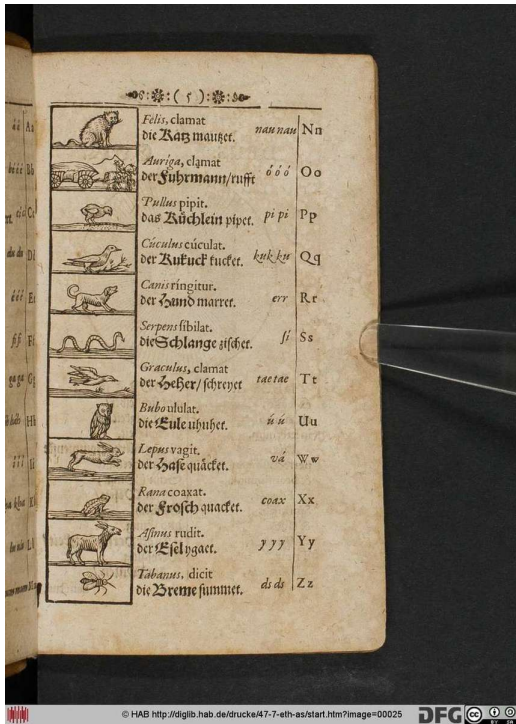 ( 5 )
Felis, clamat
die Katz mautzet. nau nau N n
Auriga, clamat
der Fuhrmann/rufft ó ó ó O o
Pullus pipit.
das Küchlein pipet. pi pi P p
Cúculus cúculat.
der Kukuck kucket. kuk ku Q q
Canis ríngitur.
der Hund marret. err R r
Serpens sibilat.
die Schlange zischet. sí S s
Graculus, clamat
der Heher/ schreyet tae tae T t
Bubo ululat.
die Eule uhuhet. ú ú U u
Lepus vagit.
der Hase quäcket. vá W w
Rana coaxat.
der Frosch quacket. coax X x
Asinus rudit.
der Esel ygaet. y y y Y y
Tabanus, dicit
die Breme summet. ds ds Z z
© HAB http://diglib.hab.de/drucke/47-7-eth-as/start.htm?image=00025
DFG
cc
BY SA